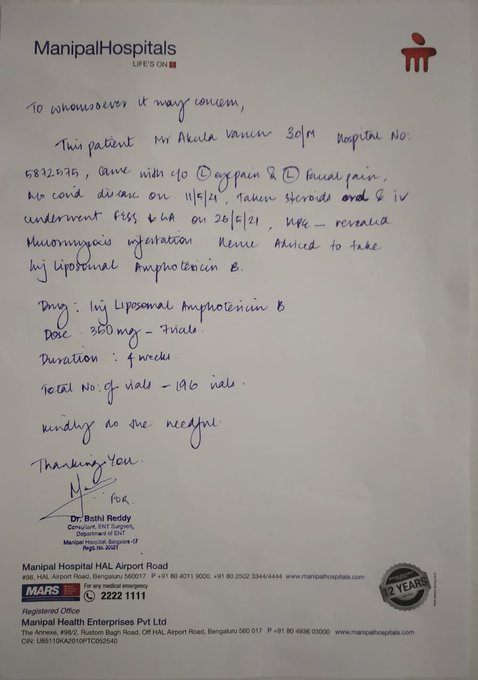 ManipalHospitals
LIFE'S ON
To whomsoever it may concern,
This patient Mr Akula Varun 30/M Hospital No:
5872575, Came with c/o (L) eye pain & (L) Facial pain,
covid disease on 11/5/21, Taken steroids oral & iv
underwent FESS LA on 26/5/21, HPE – revealed
Mucormycosis infestation Hence Advised to take
Inj Liposomal Amphotericin B.
Drug : Inj Liposomal Amphotericin B
Dose 350 mg – 7vials.
Duration : 4 weeks.
Total No: of vials – 196 vials.
Kindly do the needful.
Thanking You.
FOR
Dr. Bathi Reddy
Consultant, ENT Surgeon,
Department of ENT
Manipal Hospital, Bangalore -17
Regd. No. 20521
Manipal Hospital HAL Airport Road
#98, HAL Airport Road, Bengaluru 560017 P +91 80 4011 9000. +91 80 2502 3344/4444 www.manipalhospitals.com
MARS For any medical emergency
2222 1111
12 YEARS
Registered Office
Manipal Health Enterprises Pvt Ltd
The Annexe, #98/2, Rustom Bagh Road, Off HAL Airport Road, Bengaluru 560 017 P +91 80 4936 03000 www.manipalhospitals.com
CIN: U85110KA2010PTC052540